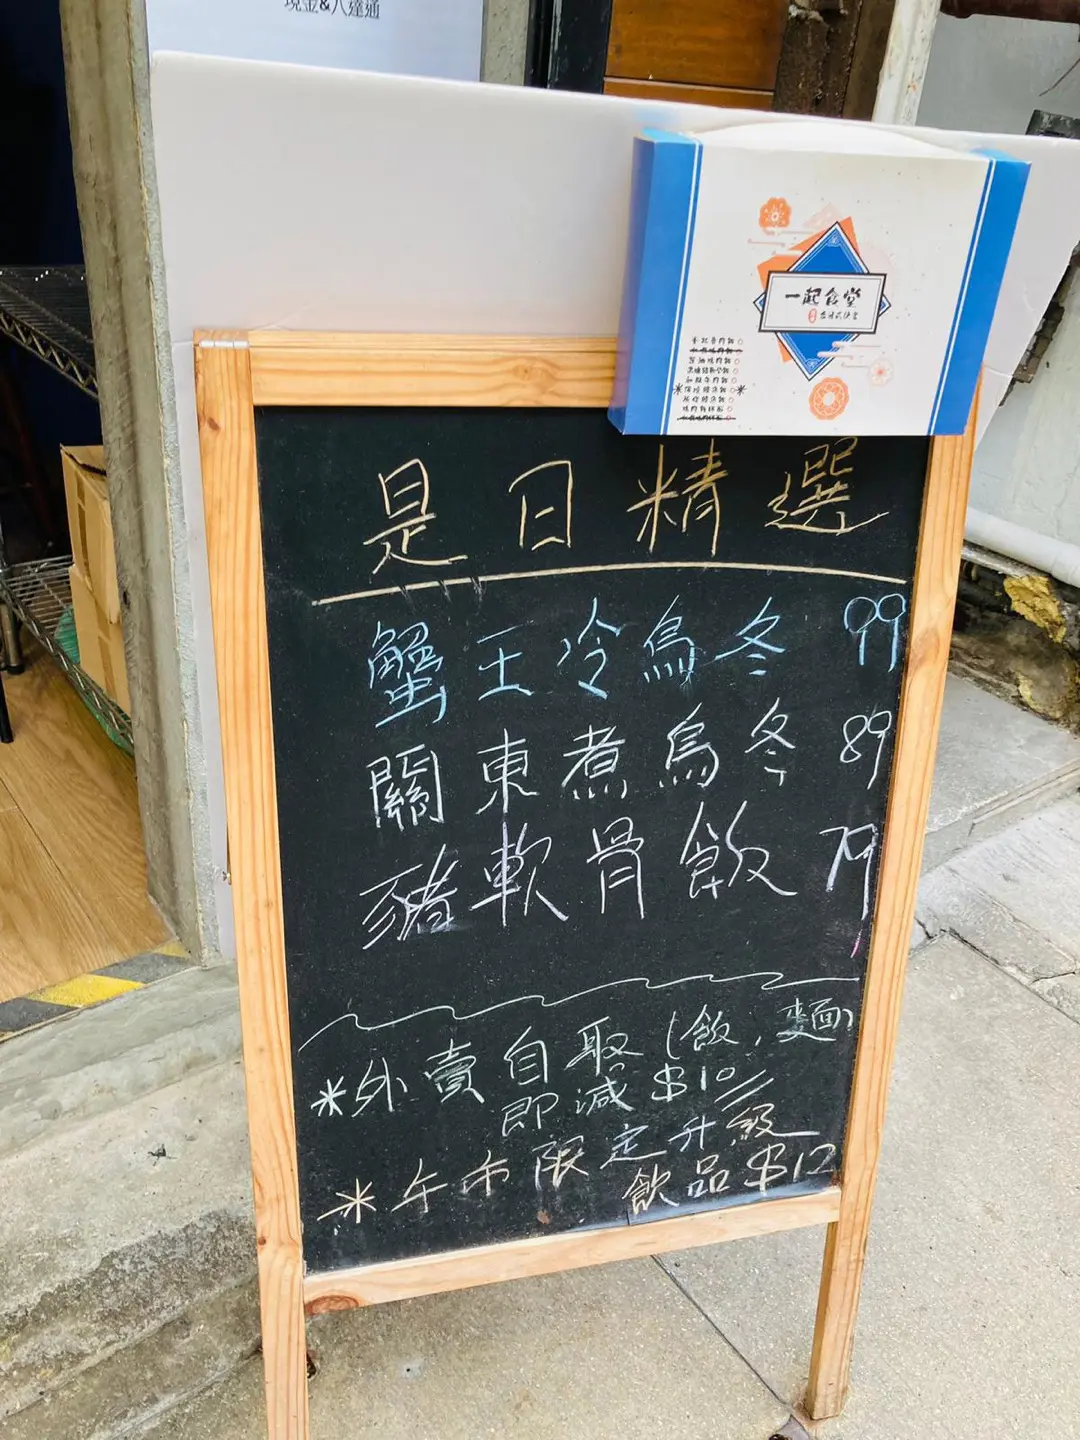 現金&八達通
一起食堂
是日精選
蟹王冷烏冬 99
關東煮烏冬 89
豬軟骨飯 79
*外賣自取(飯,麵)
即減$10
*午市限定升級
飲品$12